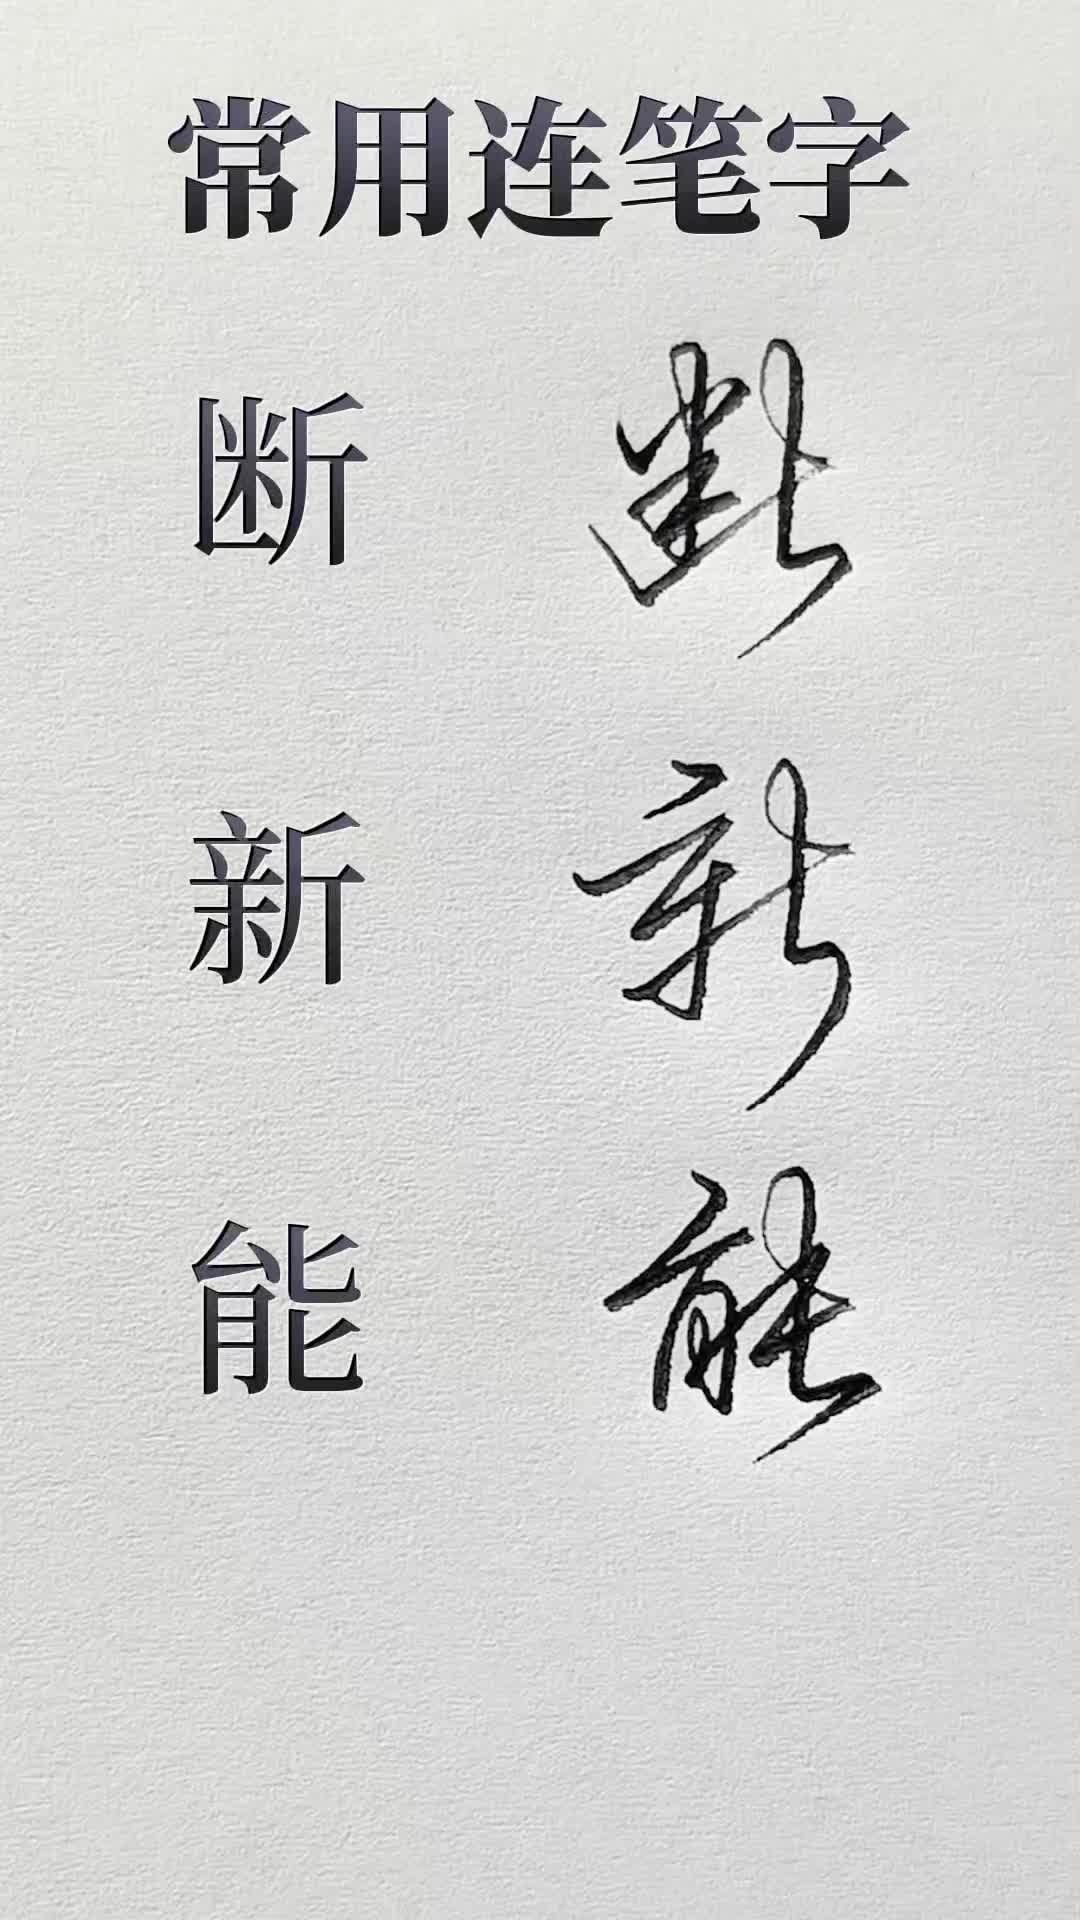 常用连笔字
断 断
新 新
能 能